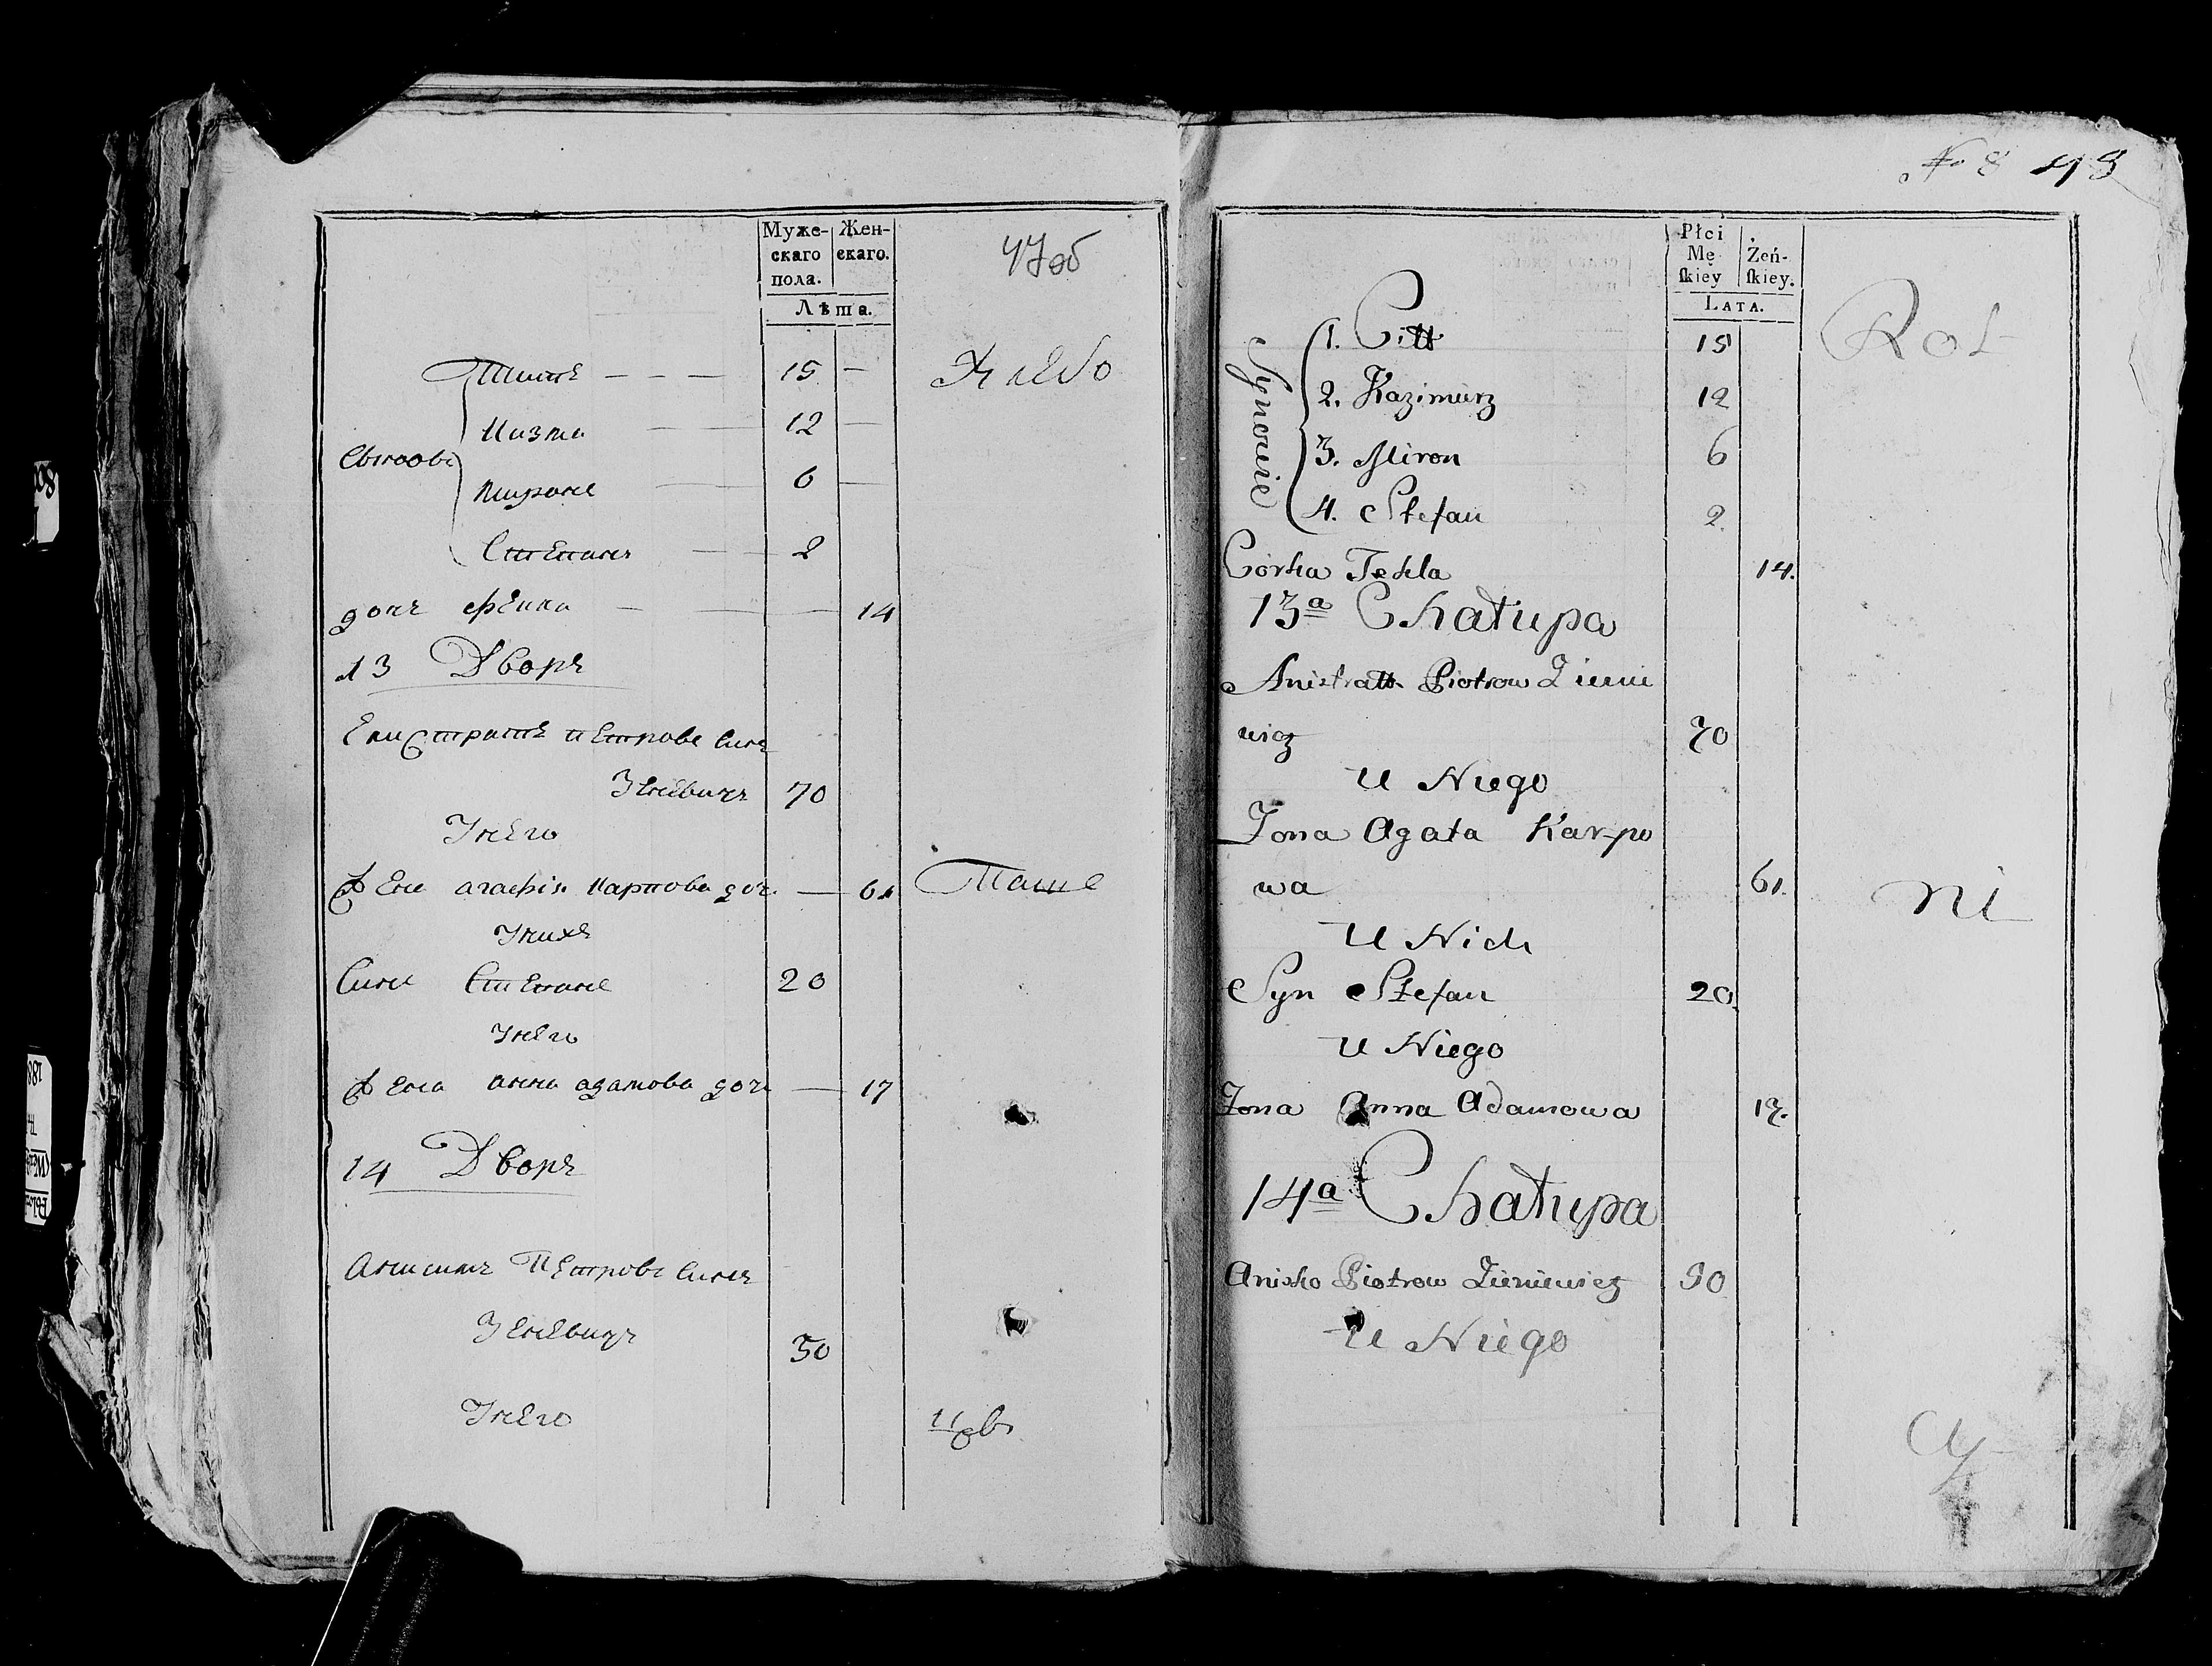 Муже-
скаго
пола.
Жен-
скаго.
Лѣта.
47об
Титъ — — — 15 —
Хлебо
Сынове
12
Миронъ 6
Степанъ 2
дочь 14
13 Дворъ
Елистратъ Петровъ сынъ
Зеневичь 70
У него
Жена агафія Карпова дочь — 61
Паше
У нихъ
Сынъ Степанъ 20
У него
Жена анна адамова дочь — 17
14 Дворъ
Анисимъ Петровъ сынъ
Зеневичь
50
У него
No 8 48
Płci
Mę
skiey
Żeń-
skiey.
LATA.
Rol
Synowie
1. Citt 15
2. Kazimierz 12
3. Miron 6
4. Stefan 2
Córka Tekla 14.
13a Chałupa
Anistratt Piotrow Zienie
wicz 70
U Niego
Żona Agata Karpo
wa 61.
ni
U Nich
Syn Stefan 20
U Niego
Żona Anna Adamowa 17.
14a Chałupa
Anisko Piotrow Zieniewicz 50
U Niego